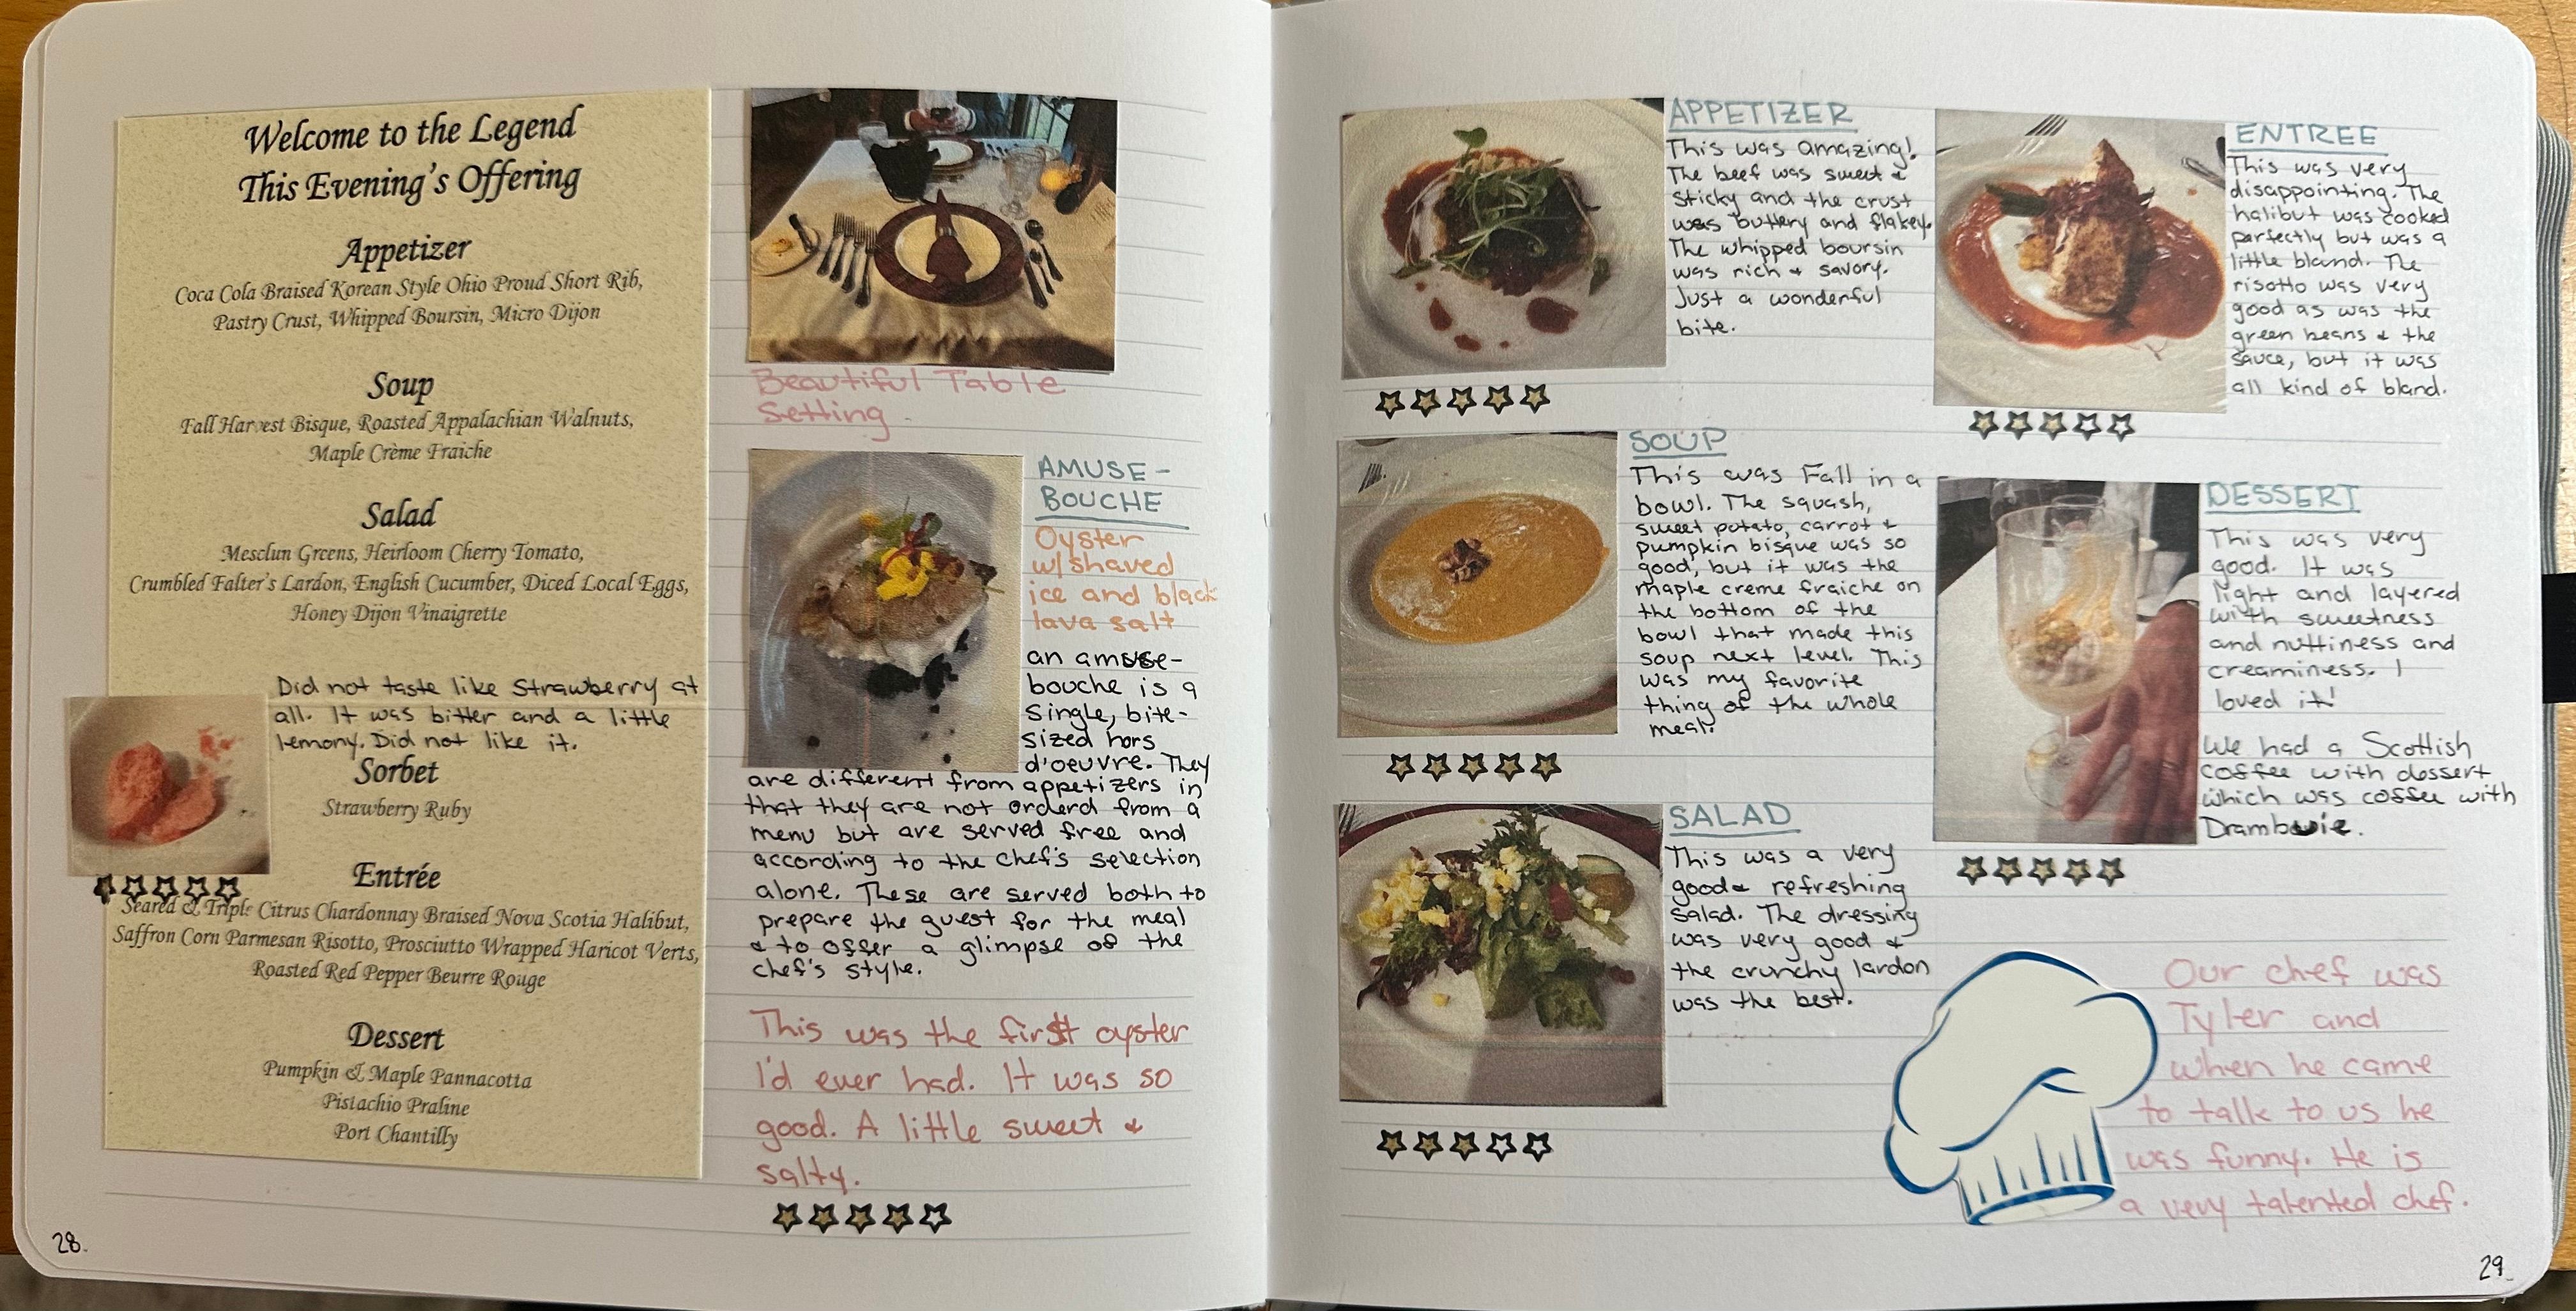 Welcome to the Legend
This Evening's Offering
Appetizer
Coca Cola Braised Korean Style Ohio Proud Short Rib,
Pastry Crust, Whipped Boursin, Micro Dijon
Soup
Fall Harvest Bisque, Roasted Appalachian Walnuts,
Maple Crème Fraiche
Salad
Mesclun Greens, Heirloom Cherry Tomato,
Crumbled Falter's Lardon, English Cucumber, Diced Local Eggs,
Honey Dijon Vinaigrette
Did not taste like Strawberry at
all. It was bitter and a little
lemony. Did not like it.
Sorbet
Strawberry Ruby
Entrée
Seared & Triple Citrus Chardonnay Braised Nova Scotia Halibut,
Saffron Corn Parmesan Risotto, Prosciutto Wrapped Haricot Verts,
Roasted Red Pepper Beurre Rouge
Dessert
Pumpkin & Maple Pannacotta
Pistachio Praline
Port Chantilly
28
Beautiful Table
Setting
AMUSE-
BOUCHE
Oyster
w/shaved
ice and black
lava salt
an amuse-
bouche is a
single, bite-
sized hors
d'oeuvre. They
are different from appetizers in
that they are not orderd from a
menu but are served free and
according to the chef's selection
alone. These are served both to
prepare the guest for the meal
& to offer a glimpse of the
chef's style.
This was the first oyster
I'd ever had. It was so
good. A little sweet &
salty.
APPETIZER
This was amazing!
The beef was sweet &
sticky and the crust
was buttery and flakey.
The whipped boursin
was rich & savory.
Just a wonderful
bite.
SOUP
This was Fall in a
bowl. The squash,
sweet potato, carrot &
pumpkin bisque was so
good, but it was the
maple creme fraiche on
the bottom of the
bowl that made this
soup next level. This
was my favorite
thing of the whole
meal.
SALAD
This was a very
good & refreshing
salad. The dressing
was very good &
the crunchy lardon
was the best.
ENTREE
This was very
disappointing. The
halibut was cooked
perfectly but was a
little bland. The
risotto was very
good as was the
green beans & the
sauce, but it was
all kind of bland.
DESSERT
This was very
good. It was
light and layered
with sweetness
and nuttiness and
creaminess. I
loved it!
We had a Scottish
coffee with dessert
which was coffee with
Drambuie.
Our chef was
Tyler and
when he came
to talk to us he
was funny. He is
a very talented chef.
29